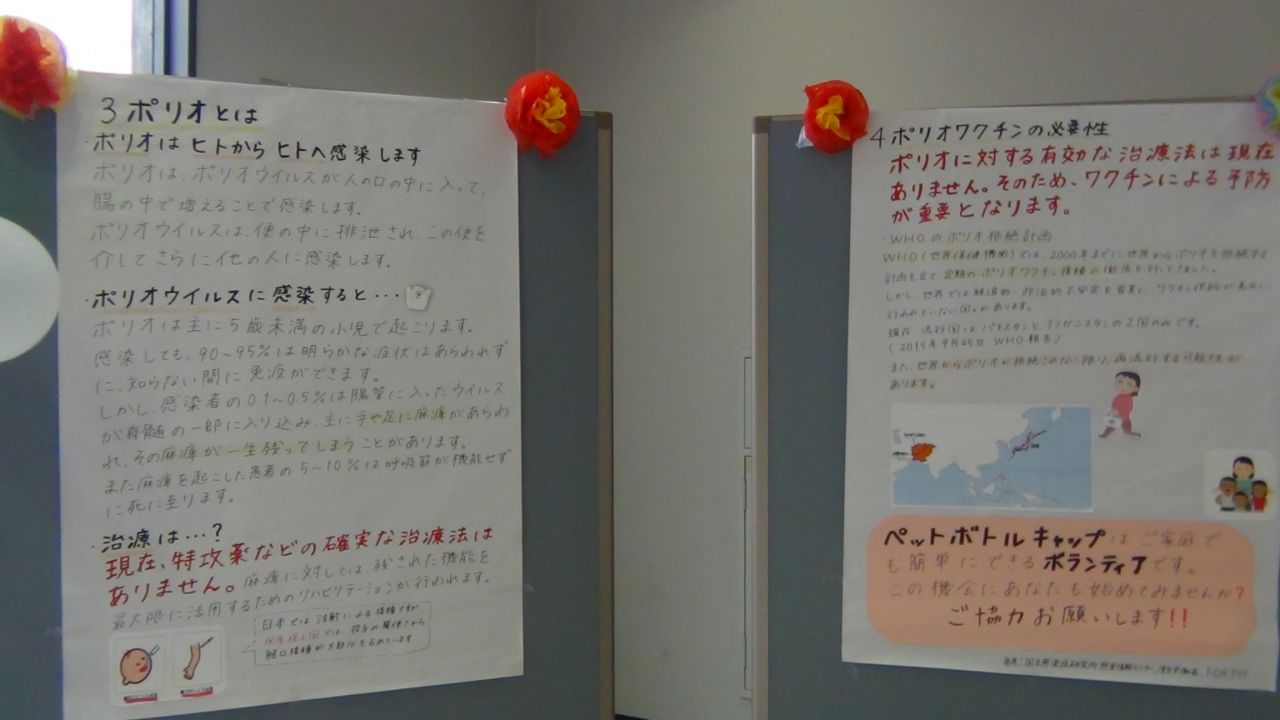 3 ポリオとは
・ポリオは ヒトから ヒトへ感染します
ポリオは、ポリオウイルスが人の口の中に入って、
腸の中で増えることで感染します。
ポリオウイルスは、便の中に排泄され、この便を
介してさらに他の人に感染します。
・ポリオウイルスに感染すると…
ポリオは主に5歳未満の小児で起こります。
感染しても、90~95%は明らかな症状はあらわれず
に、知らない間に免疫ができます。
しかし、感染者の0.1~0.5%は腸管に入ったウイルス
が脊髄の一部に入り込み、主に手や足に麻痺があらわ
れ、その麻痺が一生残ってしまうことがあります。
また麻痺を起こした患者の5~10%は呼吸筋が機能せず
に死に至ります。
・治療は…?
現在、特効薬などの確実な治療法は
ありません。麻痺に対しては、残された機能を
最大限に活用するためのリハビリテーションが行われます。
日本では注射による接種ですが
では、投与の簡便さから
経口接種が大部分を占めています
4 ポリオワクチンの必要性
ポリオに対する有効な治療法は現在
ありません。そのため、ワクチンによる予防
が重要となります。
・WHOのポリオ根絶計画
WHO(世界保健機関)では、2000年までに世界からポリオを根絶する
計画を立て、定期のポリオワクチン接種の徹底を行ってきました。
しかし、世界では経済的、政治的不安定を背景に、ワクチン供給が充分に
行われていない国々があります。
現在、流行国はパキスタンとアフガニスタンの2国のみです。
(2015年9月25日 WHO報告)
また、世界からポリオが根絶されない限り、再流行する可能性が
あります。
ペットボトルキャップは ご家庭で
も簡単にできるボランティアです。
この機会にあなたも始めてみませんか?
ご協力お願いします!!
参考:国立感染症研究所感染症情報センター、厚生労働省、FORTH